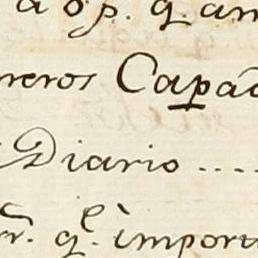 a op. q. an
neros Capac
Diario ....
rr. q.e import